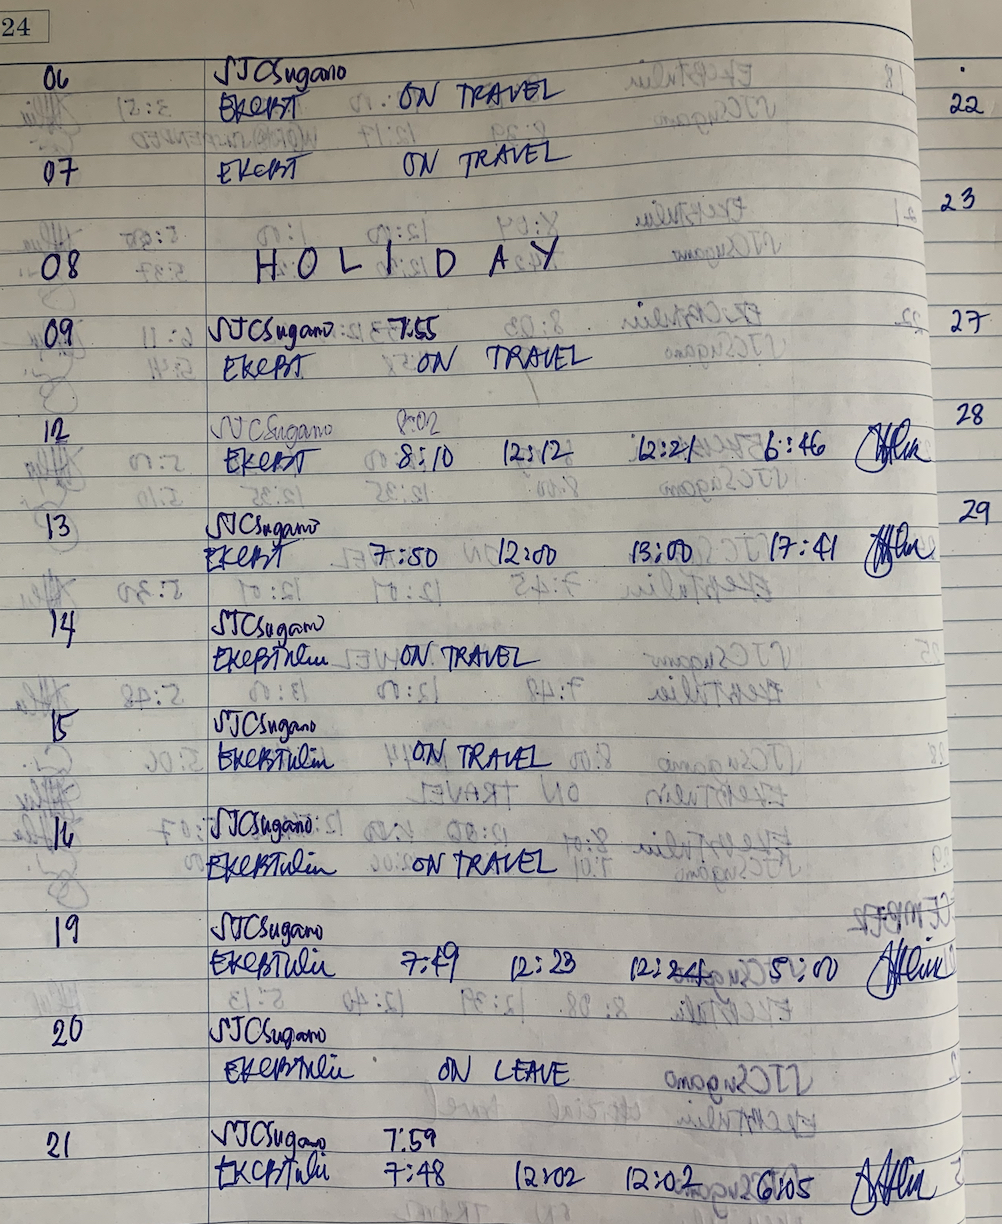 24
06 SJCSugano
EKCBT ON TRAVEL
22
07 EKCBT ON TRAVEL
23
08 HOLIDAY
09 SJCSugano 7:55
27
EKCBT ON TRAVEL
28
12 SJCSugano 8:02
EKCBT 8:10 12:12 12:21 6:46
29
13 SJCSugano
EKCBT 7:50 12:00 13:00 17:41
14 SJCSugano
EKCBTulin ON TRAVEL
15 SJCSugano
EKCBTulin ON TRAVEL
16 SJCSugano
EKCBTulin ON TRAVEL
19 SJCSugano
EKCBTulin 7:49 12:23 12:24 5:00
20 SJCSugano
EKCBTulin ON LEAVE
21 SJCSugano 7:59
EKCBTulin 7:48 12:02 12:02 6:05